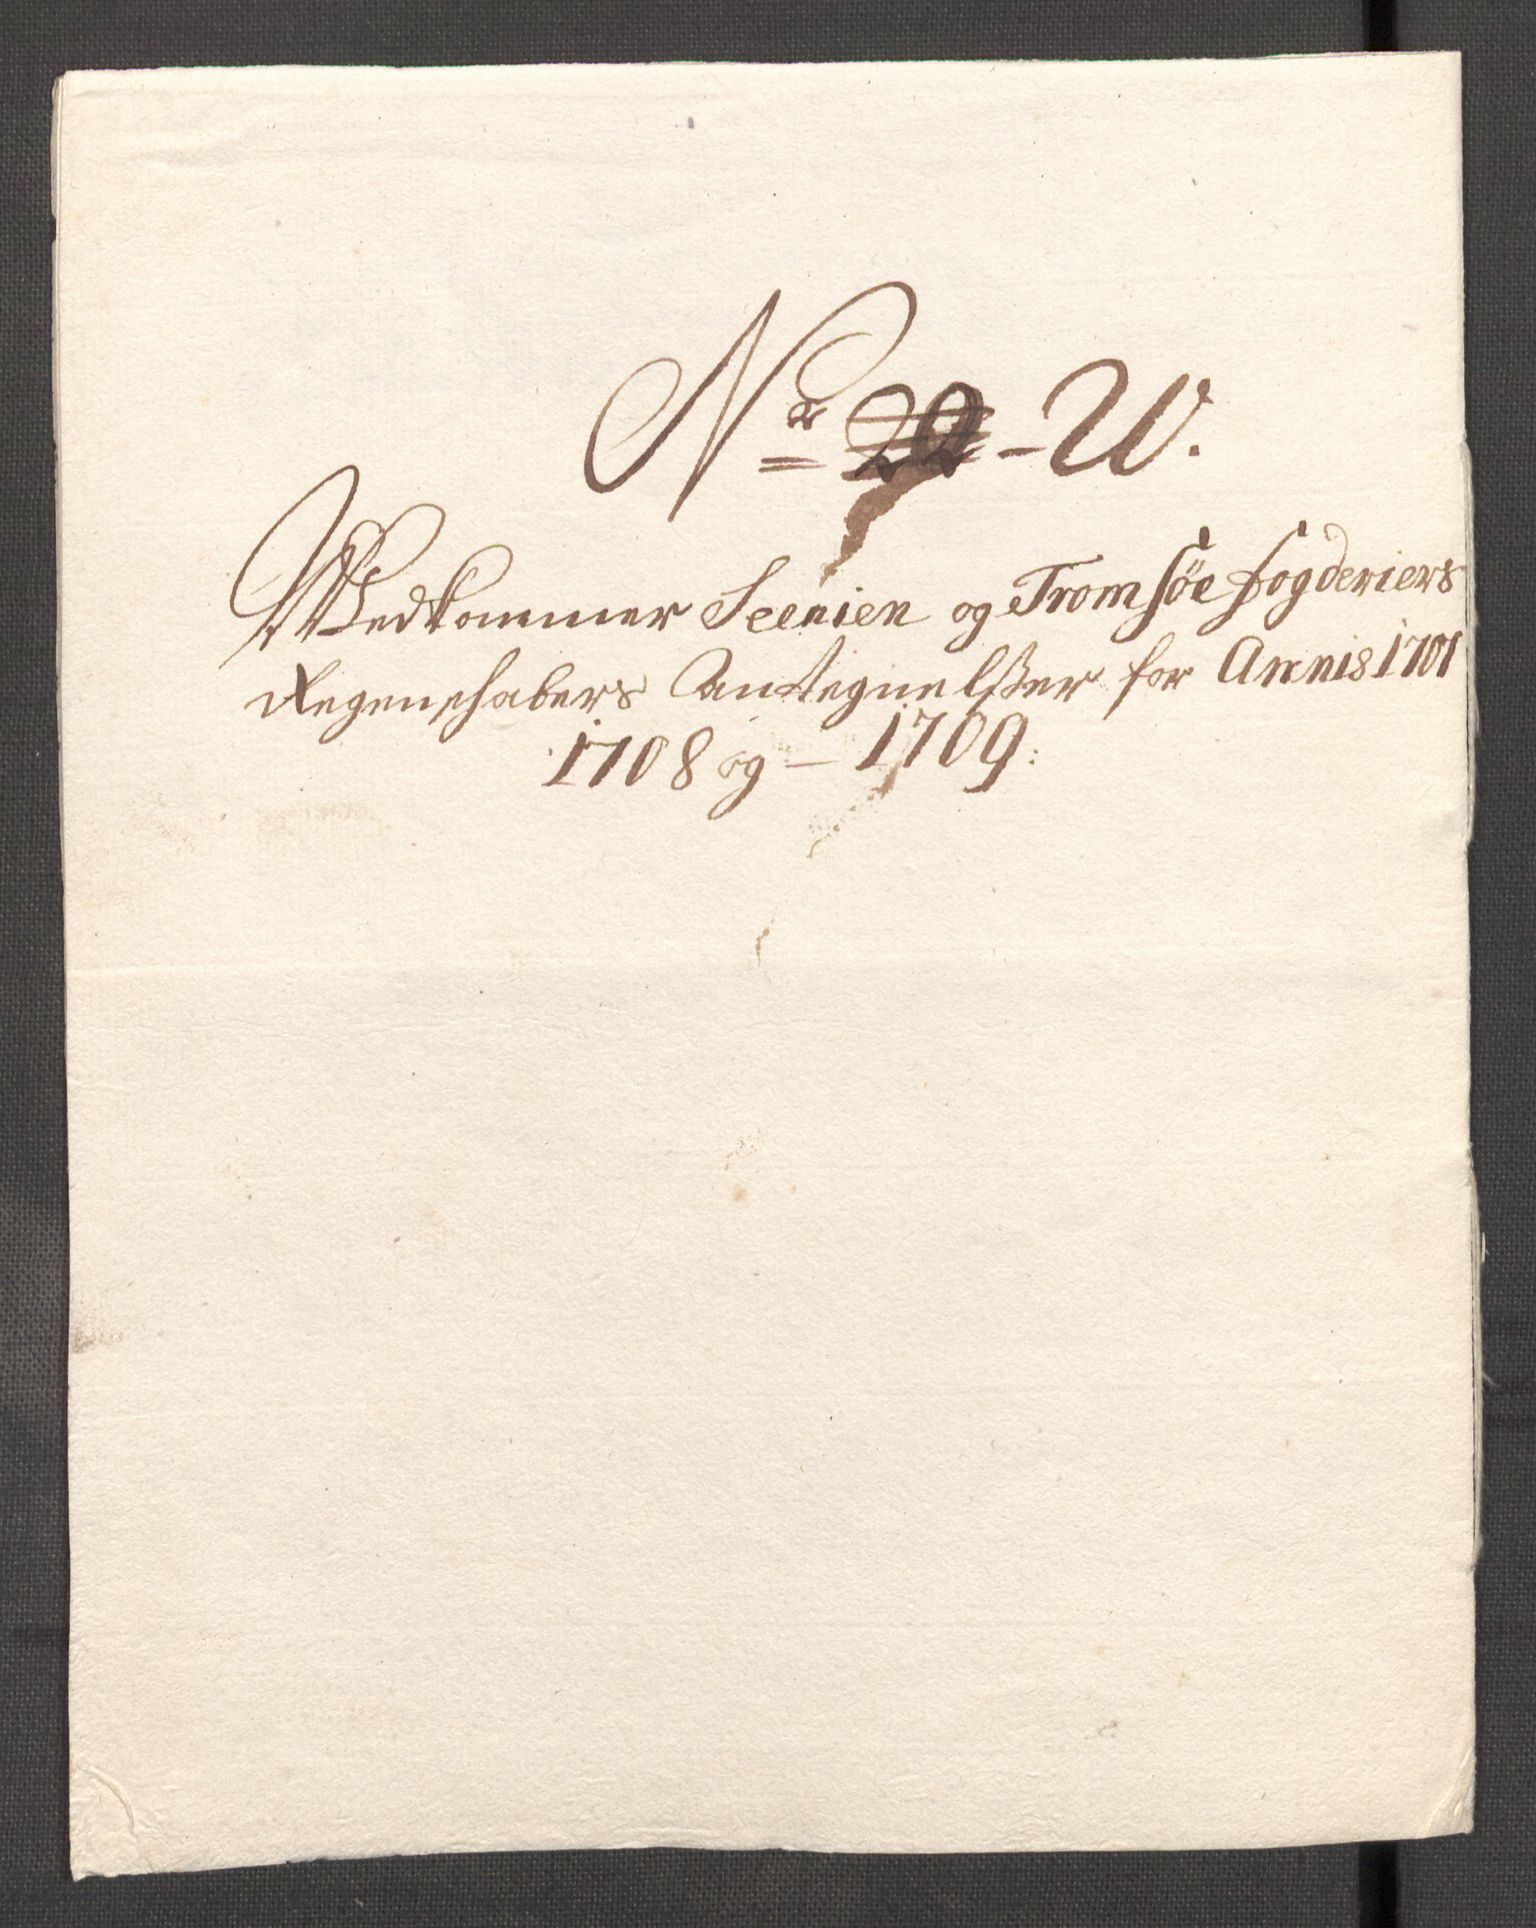 Nr 22 - W.
Wedkommer Seenien og Tromsöe fogderiers
Regenschabers Antegnelsser for Annis 1707
1708 og - 1709: